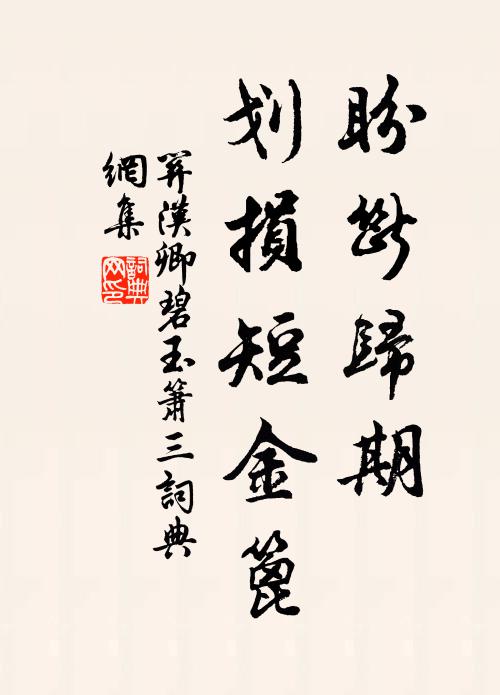 盼斷歸期
划損短金篦
關漢卿碧玉簫三詞典
網集
詞典
网印